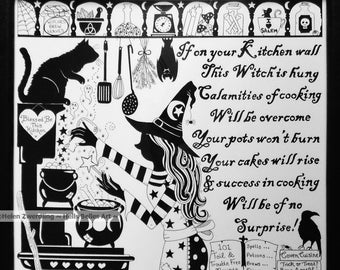 SALEM
If on your Kitchen wall
This Witch is hung
Calamities of cooking
Will be overcome
Your pots won't burn
Your cakes will rise
& success in cooking
Will be of no
Surprise!
Blessed Be
This
Kitchen
101
Toil &
Trouble Free
Spells ...
Potions ...
Brews ...
Coven Cuisine
Trick or Treat!
©Helen Zwerdling ~ HellyBelles Art ~